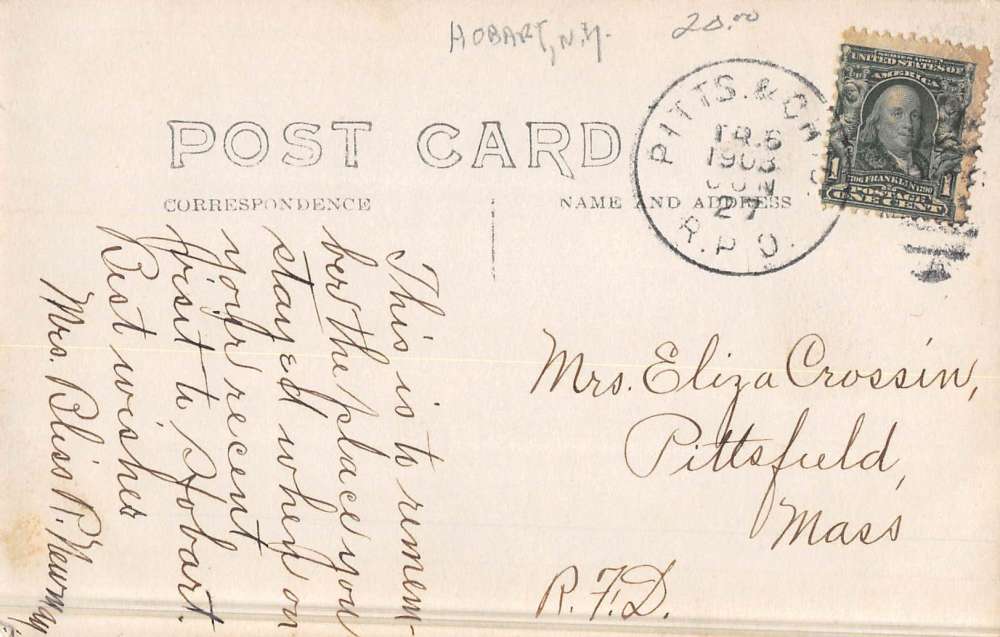 HOBART, N.Y.
20.00
PITTS. & CH
TR. 6
1908
JUN
27
R.P.O.
SERIES 1902
UNITED STATES OF
AMERICA
1706 FRANKLIN 1790
1 1
POSTAGE
ONE CENT
POST CARD
CORRESPONDENCE
NAME AND ADDRESS
This is to remem-
ber the place you
stayed when on
your recent
visit to Hobart.
Best wishes
Mrs. Bliss R.
Mrs. Eliza Crossin,
Pittsfield,
Mass
R.F.D.